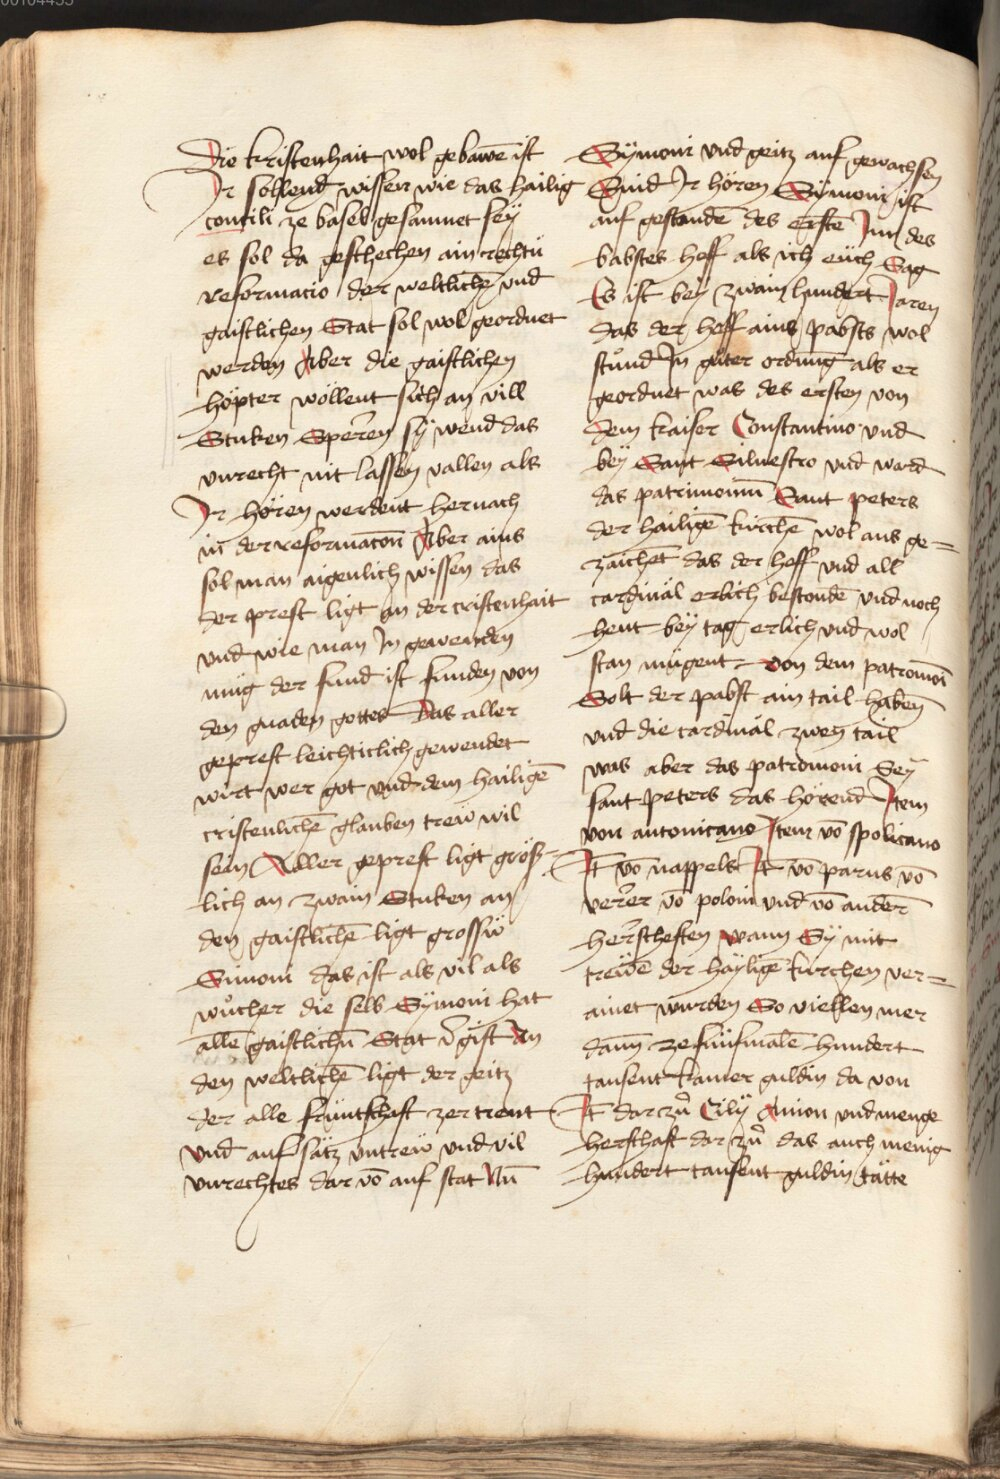 00104455
Die kristenhait wol gebawē ist
Ir sollend wissen wie das hailig
concili ze basel gesamnet seÿ
es sol da geschechen ain rechtü
reformacio der weltlichē vnd
gaistlichen Stat sol wol geordnet
werden Aber die gaistlichen
höpter wöllent sich an vill
Stuken Speren sÿ wend das
vnrecht nit lassen vallen als
Ir hören werdent hernach
in der reformacōn Aber ains
sol man aigenlich wissen das
der prest ligt an der cristenhait
vnd wie man In gewenden
müg der fund ist funden von
den gnaden gottes Das aller
geprest leichticlich gewendet
wirt wer got vnd dem hailigē
cristenlichē glauben trew wil
sein Aller geprest ligt größ-
lich an zwain Stuken an
den gaistlichē ligt grossw
Simoni das ist als vil als
wücher die selb Sÿmoni hat
alle gaistlichn̄ Stat v̄gift An
den weltlichē ligt der geitz
der alle früntschaft zertrent
vnd auf sätz vntreẅ vnd vil
vnrechtes dar vō auf stat Nū
Sÿmoni vnd geitz auf gewachsen
Sind Ir hören Sÿmoni ist
auf gestandē des Erstē Inn des
babstes hoff als ich eüch Sag
Es ist beÿ zwain hundert Jaren
das der hoff ains pabsts wol
stůnd In gůter ordnūg als er
geordnet was des ersten von
dem kaiser Constantino vnd
beÿ Sant Siluestro vnd ward
das patrimonnū Sant peters
der hailigē kirchē wol aus ge=
zaichet das der hoff vnd all
cardinäl erlich bestondē vnd noch
heut beÿ tag erlich vnd wol
stan mügent = von dem patromōi
Solt der pabst ain tail habenn
vnd die cardinäl zweÿ tail
was aber das patromoni Seÿ
sant peters das hörend Item
von antonicano Item vō spolicano
It vō nappels It vō parus vō
verer vō poloni vnd vō andern
herscheften wann Sÿ mit
trewē der haÿligē kirchen ver=
ainet wurden So viellen mer
dann ze fünfmalē hundert
tausent kamer guldin da von
It dar zů Cilÿ Auion vnd menge
herschaft dar zů das auch menig
hundert tausent guldin tätte